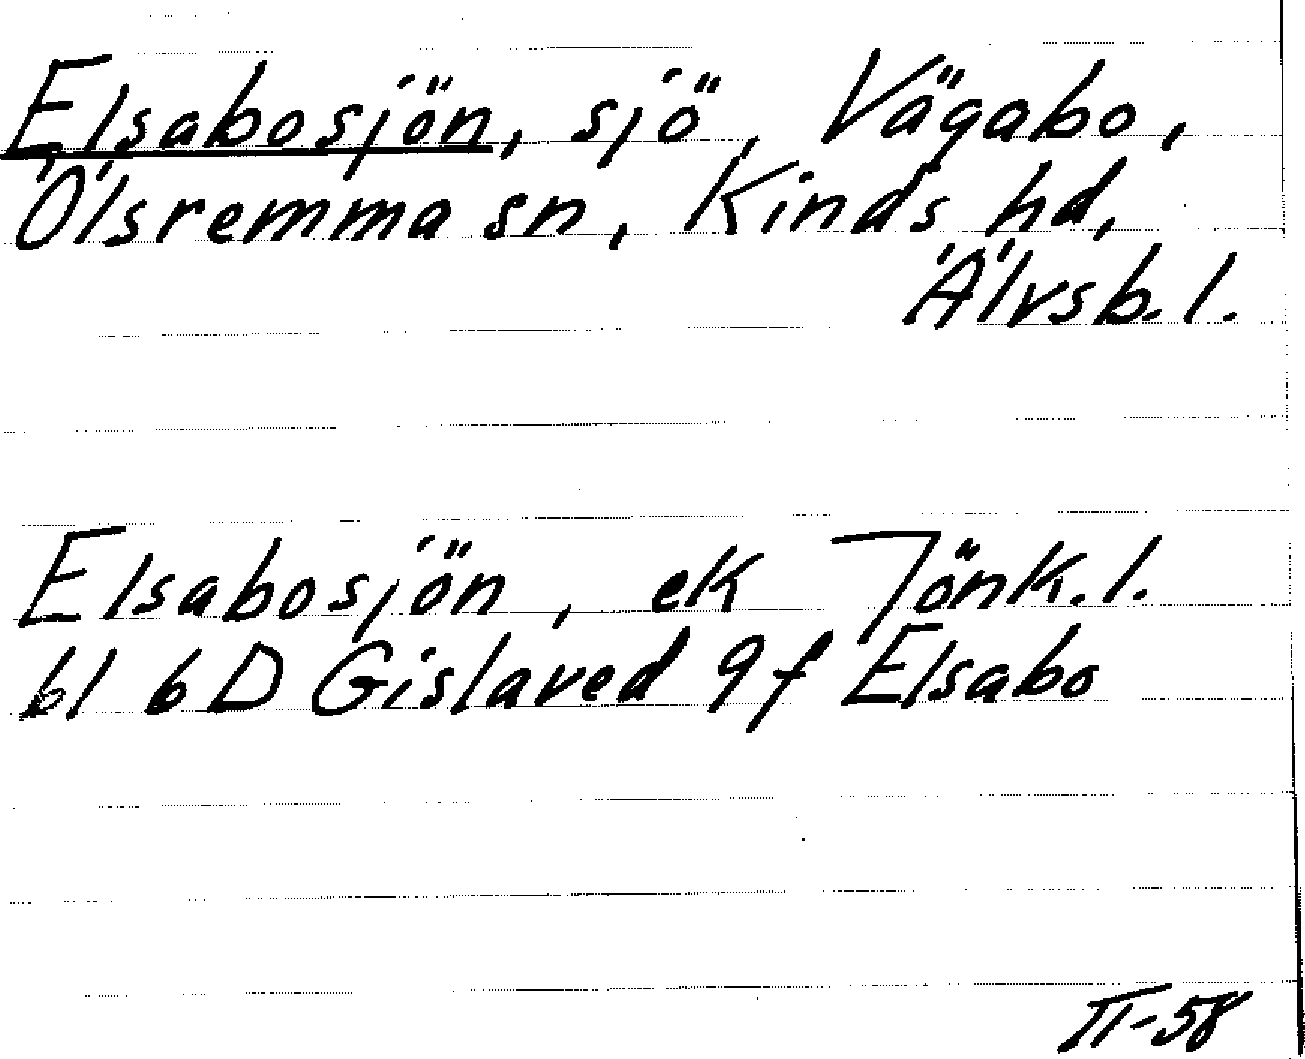 Elsabosjön, sjö, Vägabo,
Ölsremma sn, Kinds hd,
Älvsb. l.
Elsabosjön, ek Jönk. l.
bl 6 D Gislaved 9 f Elsabo
II-58